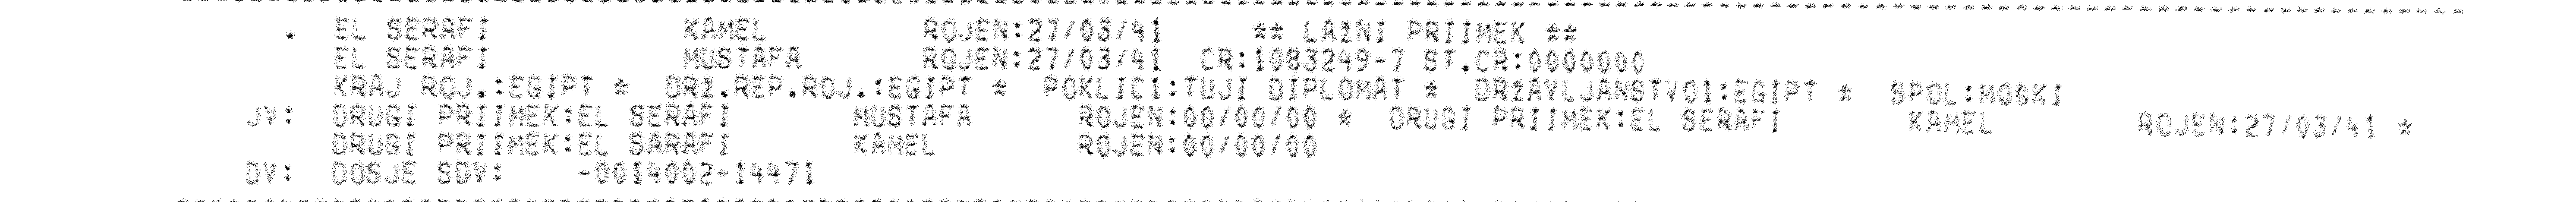 . EL SERAFI KAMEL ROJEN:27/03/41 ** LAZNI PRIIMEK **
EL SERAFI MUSTAFA ROJEN:27/03/41 CR:1083249-7 ST.CR:0000000
KRAJ ROJ.:EGIPT * DRZ.REP.ROJ.:EGIPT * POKLIC1:TUJI DIPLOMAT * DRZAVLJANSTVO1:EGIPT * SPOL:MOSKI
JV: DRUGI PRIIMEK:EL SERAFI MUSTAFA ROJEN:00/00/00 * DRUGI PRIIMEK:EL SERAFI KAMEL ROJEN:27/03/41 *
DRUGI PRIIMEK:EL SARAFI KAMEL ROJEN:00/00/00
DV: DOSJE SDV: -0014002-14471